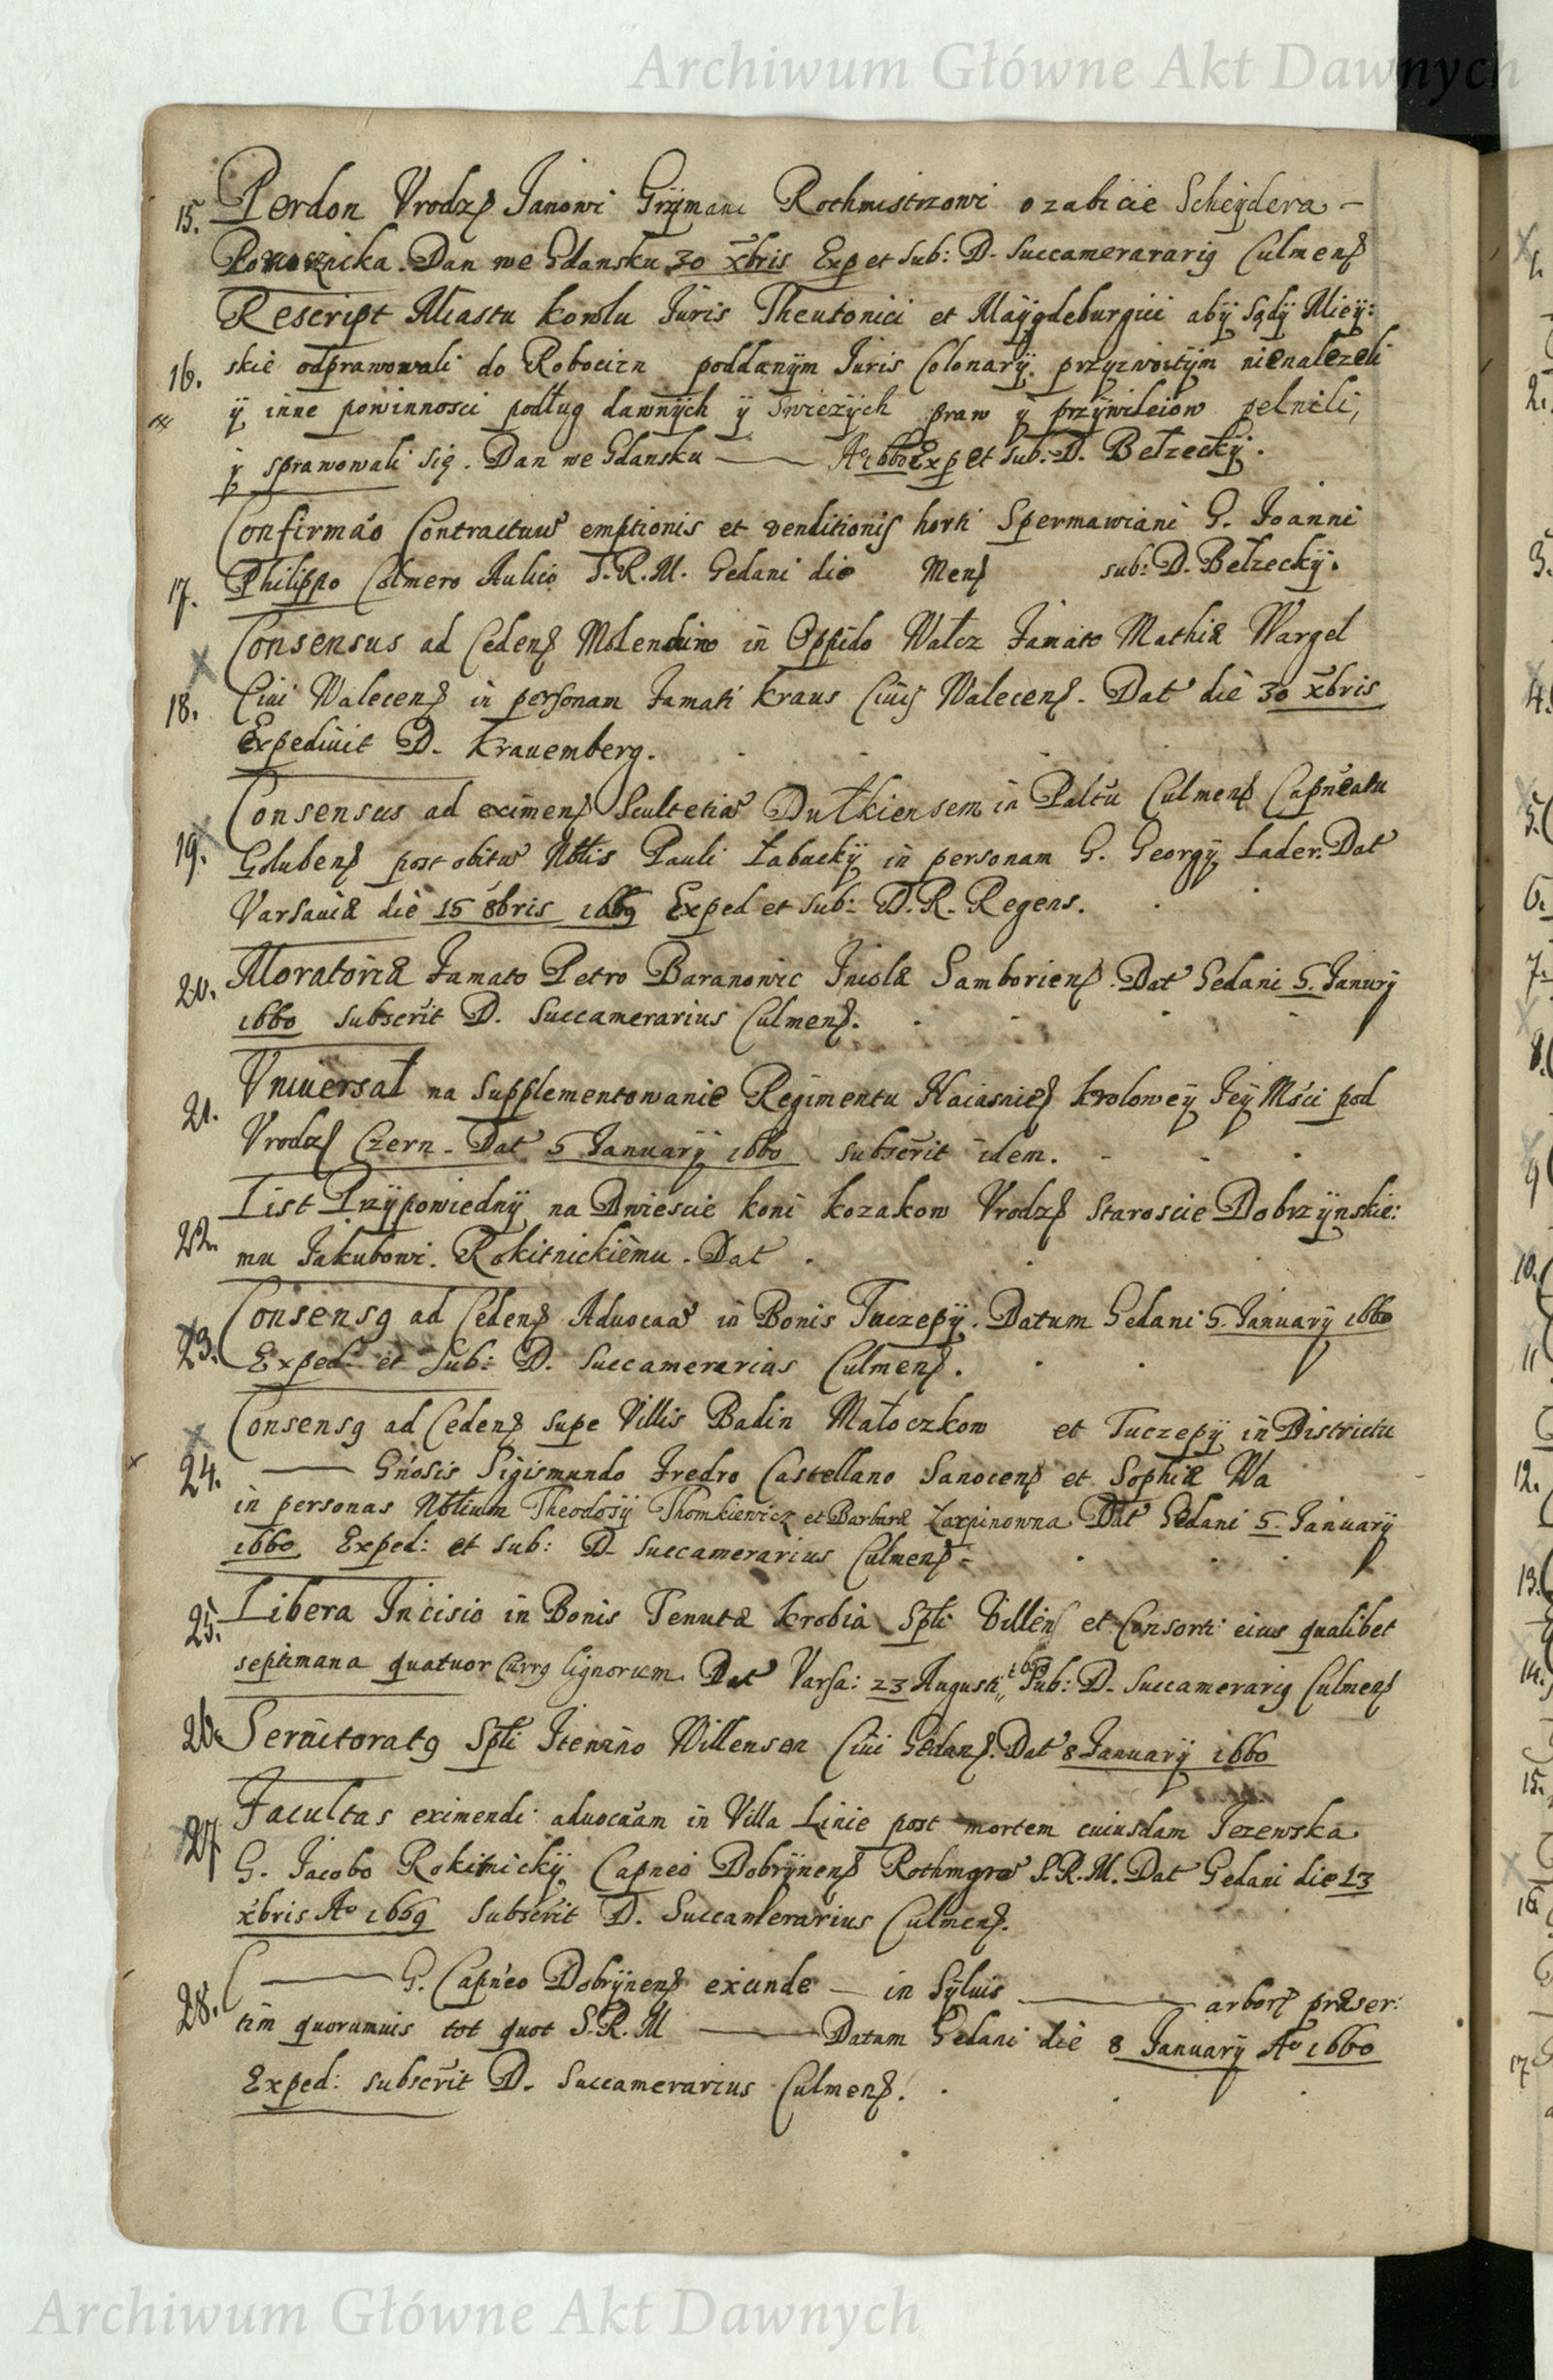 Archiwum Główne Akt Dawnych
15. Perdon Vrodzę Janowi Grzymani Rothmistrzowi o zabicie Scheydera -
Porucznika. Dan we Gdansku 30 xbris Exp et sub: D. Succamerararig Culmens
Rescript Miastu kowlu Juris Theutonici et Maÿgdeburgici abÿ Sądÿ Mieÿ:
16. skie odprawowali do Robocizn poddanÿm Juris Colonarÿ przyzwoitÿm nienalezeli
ÿ inne powinnosci podług dawnÿch ÿ swiezÿch praw ÿ przÿwileiow pełnili,
ÿ sprawowali się. Dan we Gdansku —— Ao 1660 Exp et sub: D. Bełzeckÿ.
Confirmao Contractuu emptionis et venditionis horti Spermawiani G. Joanni
17. Philippo Colmero Aulico S.R.M. Gedani die Mens sub: D. Bełzeckÿ.
Consensus ad Cedens Molendino in Oppido Wałcz Famato Mathiæ Wargel
18. Ciui Walecens in personam Famati kraus Ciuis Walecens. Dat die 30 xbris
Expediuit D. krauemberg.
Consensus ad eximens Scultetia Dutkiensem in Paltu Culmens Capneatu
19. Golubens post obitu Nbtis Pauli Łabuckÿ in personam G. Georgÿ Lader. Dat
Varsauiæ die 15 8bris 1669 Exped et sub: D. R. Regens.
20. Moratoriæ Famato Petro Baranowic Incolæ Samboriens. Dat Gedani 5. Januarÿ
1660 subscrit D. Succamerarius Culmens.
21. Vniuersał na supplementowanie Regimentu Naiasnies kroloweÿ Jeÿ Mści pod
Vrodz Czern. Dat 5 Januarÿ 1660 subscrit idem.
List Przÿpowiednÿ na Dwiescie koni kozakow Vrodz Staroscie Dobrzÿnskie:
22. mu Jakubowi. Rokitnickiemu. Dat.
Consensg ad Cedens Aduocaa in Bonis Tuczepÿ. Datum Gedani 5. Januarÿ 1660
23. Exped: et sub: D. Succamerarius Culmens.
Consensg ad Cedens supe Villis Badin Małoczkow et Tuczepÿ in Districtu
24. —— Gnosis Sigismundo Fredro Castellano Sanocens et Sophiæ Wa
in personas Nbtium Theodosÿ Thomkiewicz et Barbaræ Łaxpinowna Dat Gedani 5. Januarÿ
1660 Exped: et sub: D. Succamerarius Culmens -
25. Libera Incisio in Bonis Tenutæ krobia Spli Villens et Consorti eius qualibet
septimana quatuor Currg lignorum. Dat Varsa: 23 Augusti sub: D. Succamerarig Culmens
26. Seruitoratg Spli Willensen Ciui Gedans. Dat 8 Januarÿ 1660
Facultas eximendi aduocaam in Villa Linie post mortem cuiusdam Jezewska
27 G. Jacobo Rokitnickÿ Capneo Dobrÿnens Rothmgro S.R.M. Dat Gedani die 13
xbris Ao 1669 subscrit D. Succamerarius Culmens.
C —— G. Capneo Dobrÿnens exiunde — in Sÿluis —— arbors præser:
28. tim quorumuis tot quot S.R.M —— Datum Gedani die 8 Januarÿ Ao 1660
Exped: subscrit D. Succamerarius Culmens.
Archiwum Główne Akt Dawnych